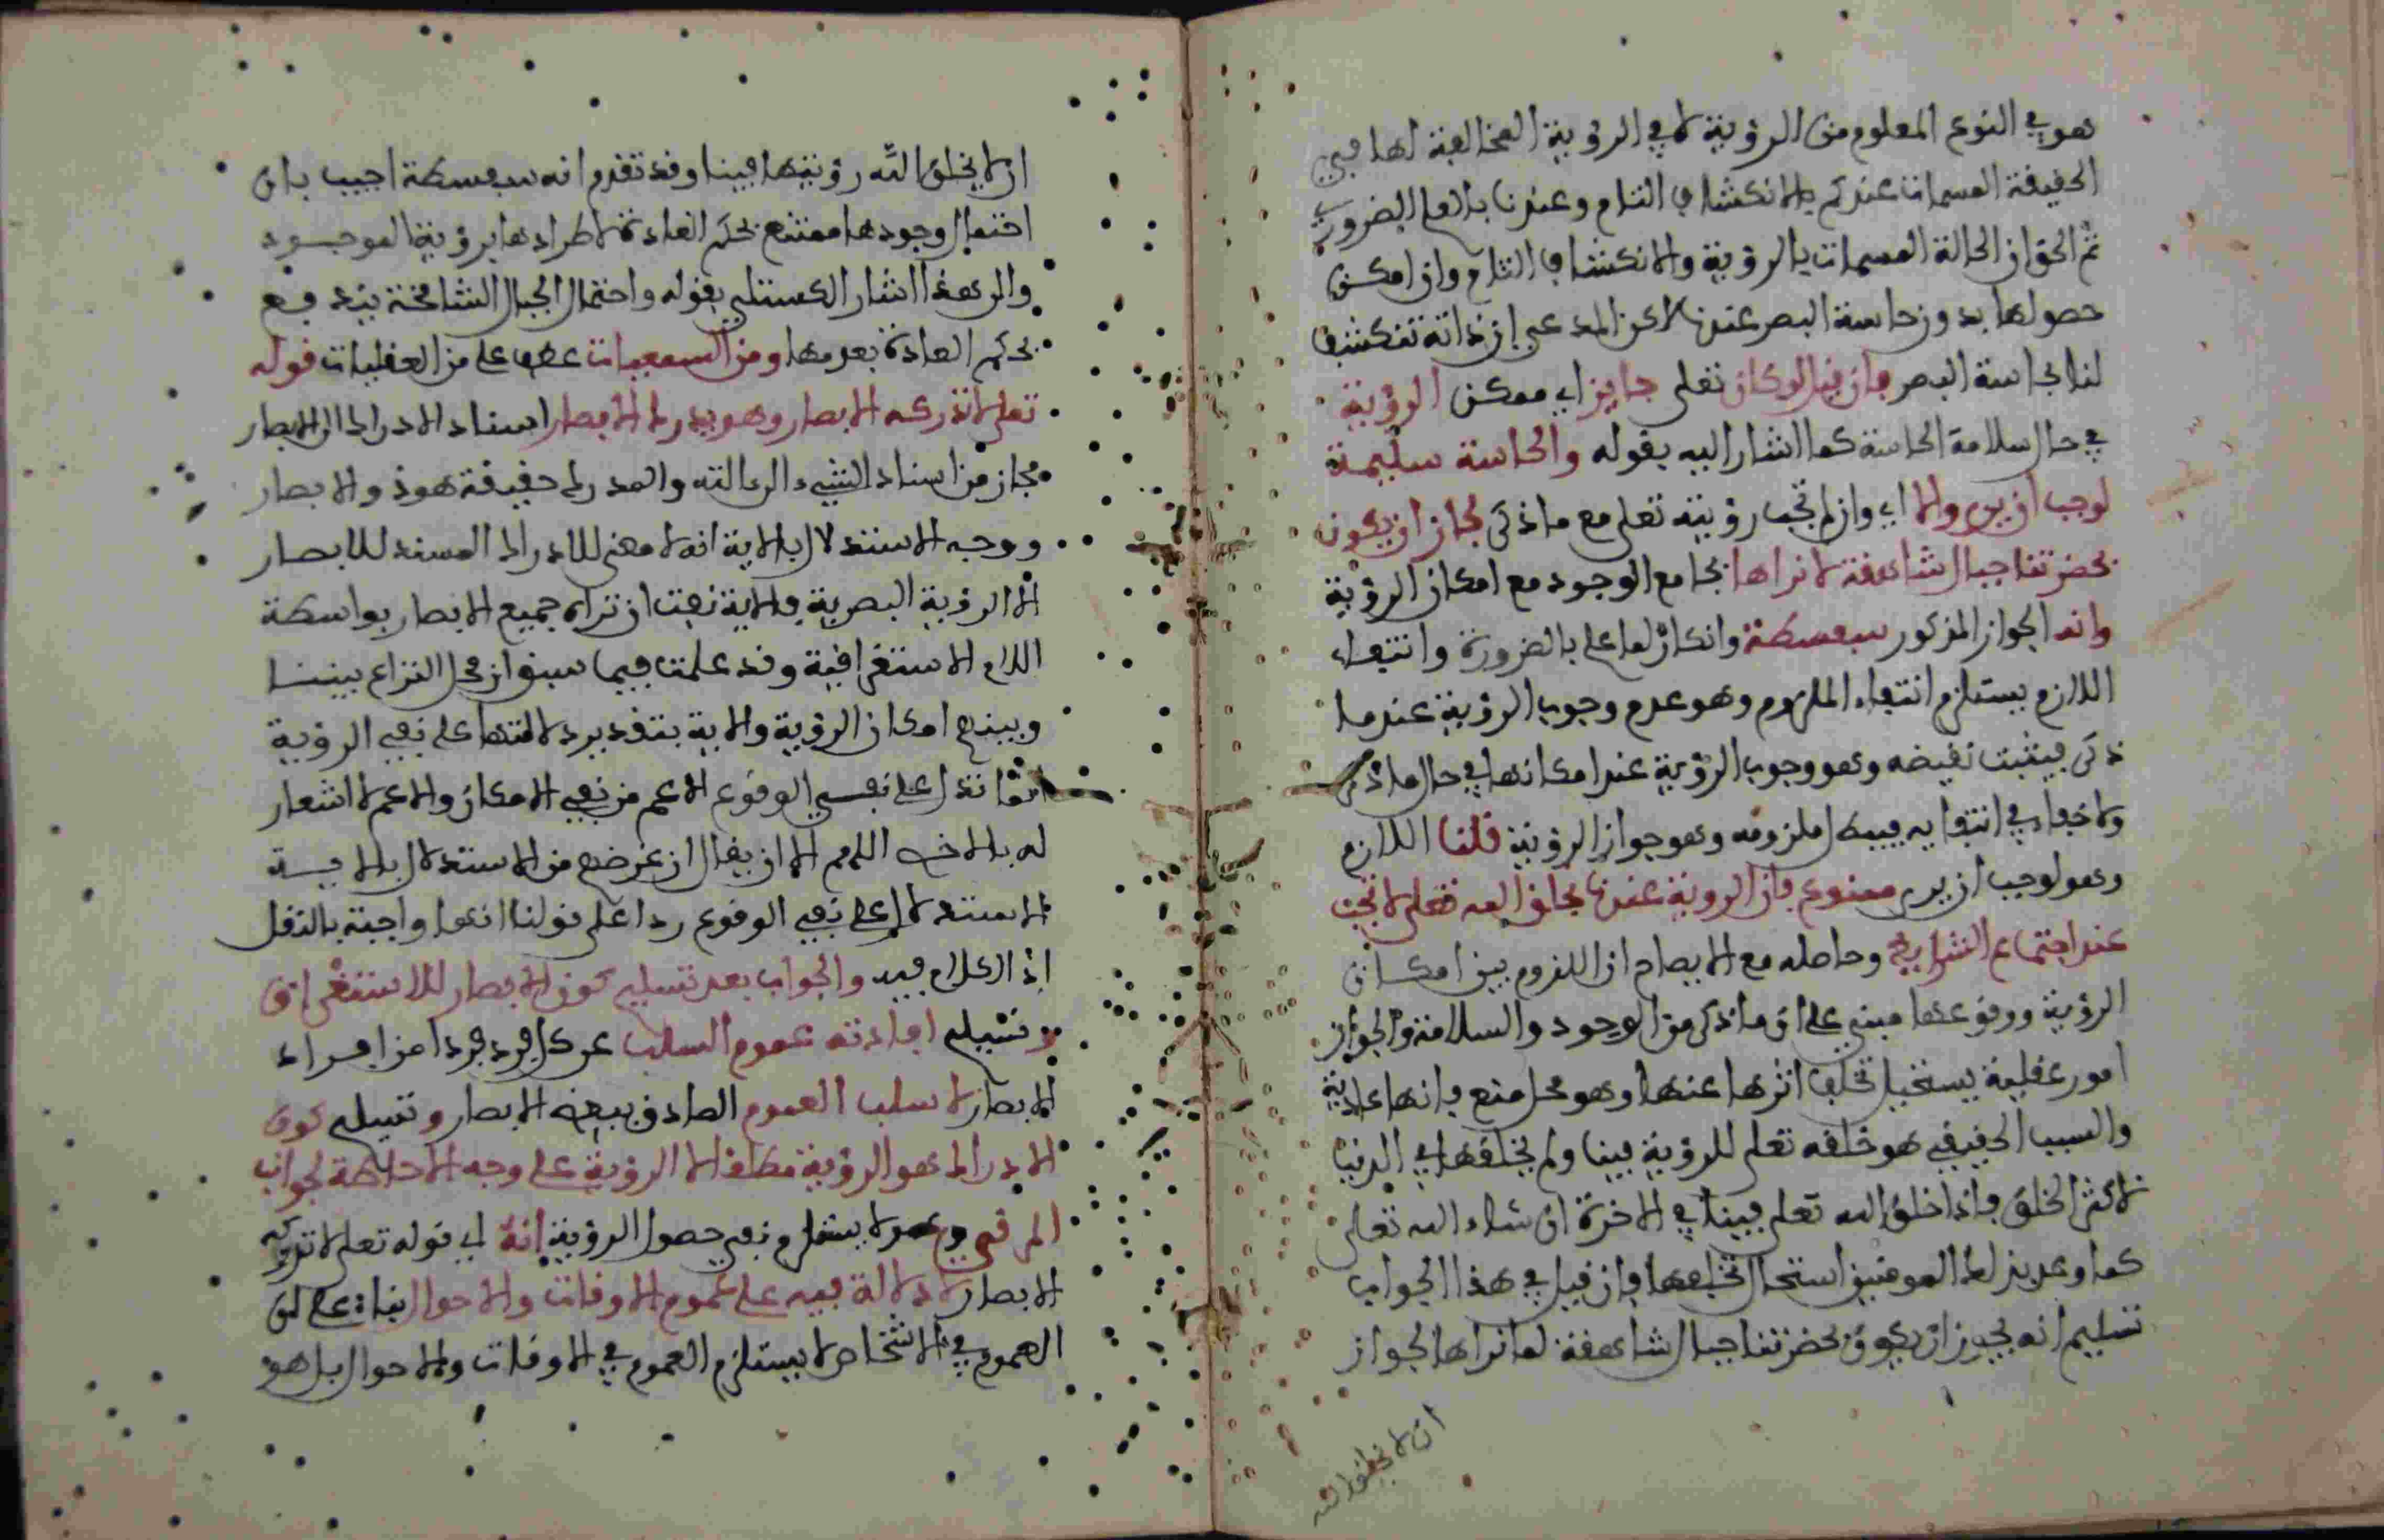 هو في النوع المعلوم من الرؤية لا في الرؤية المخالفة لها في
الحقيقة المسمات عندكم بالانكشاف التام وعندنا بالعلم الضروري
ثم الحق ان الحالة المسمات بالرؤية والانكشاف التام وان امكن
حصولها بدون حاسة البصر عندنا لاكن المدعى ان ذاته تنكشف
لنا بحاسة البصر فان قيل لو كان تعلى جايز اي ممكن الرؤية
في حال سلامة الحاسة كما اشار اليه بقوله والحاسة سليمة
لوجب ان يرى والا اي وان لم تجب رؤيته تعلى مع ما ذكر لجاز ان يكون
بحضرتنا جبال شاهقة لا نراها بجامع الوجود مع امكان الرؤية
وانه الجواز المذكور سفسطة وانكار لما علم بالضرورة وانتفاء
اللازم يستلزم انتفاء الملزوم وهو عدم وجوب الرؤية عند ما
ذكر فيثبت نقيضه وهو وجوب الرؤية عند امكانها في حال ما ذكر
ولا خفاء في انتفايه فيبطل ملزومه وهو جواز الرؤية قلنا اللازم
وهو لوجب ان يرى ممنوع فان الروية عندنا بخلق الله تعلى لا تجب
عند اجتماع الشرايط وحاصله مع الايضاح ان اللزوم بين امكان
الرؤية ووقوعها مبني على ان ما ذكر من الوجود والسلامة والجواز
امور عقلية يستحيل تخلف اثرها عنها وهو محل منع فانها عادية
والسبب الحقيقي هو خلقه تعلى للرؤية فينا ولم يخلقها في الدنيا
لاكثر الخلق فاذا خلق الله تعلى فينا في الاخرة ان شاء الله تعلى
كما وعد بذلك المومنين استحال تخلفها فان قيل في هذا الجواب
تسليم انه يجوز ان يكون بحضرتنا جبال شاهقة لما نراها لجواز
ان لا يخلق الله
ان لا يخلق الله رؤيتها فينا وقد تقدم انه سفسطة اجيب بان
احتمال وجودها ممتنع بحكم العادة لاطرادها برؤية الموجود
والى هذا اشار الكستلي بقوله واحتمال الجبال الشامخة يندفع
بحكم العادة بعدمها ومن السمعيات عطف على من العقليات قوله
تعلى لا تدركه الابصار وهو يدرك الابصار اسناد الادراك الى الابصار
مجاز من اسناد الشيء الى ءالته والمدرك حقيقة هو ذو الابصار
ووجه الاستدلال بالاية انه لا معنى للادراك المسند للابصار
الا الرؤية البصرية والاية نفت ان تراه جميع الابصار بواسطة
اللام الاستغراقية وقد علمت فيما سبق ان محل النزاع بيننا
وبينهم امكان الرؤية والاية بتقدير دلالتها على نفي الرؤية
انما تدل على نفي الوقوع الاعم من نفي الامكان والاعم لا اشعار
له بالاخص اللهم الا ان يقال ان غرضهم من الاستدلال بالاية
الاستدلال على نفي الوقوع ردا على قولنا انها واجبة بالنقل
اذ الكلام فيه والجواب بعد تسليم كون الابصار للاستغراق
وتسليم افادته عموم السلب عن كل فرد فرد من افراد
الابصار لا سلب العموم الصادق ببعض الابصار وتسليم كون
الادراك هو الرؤية مطلقا لا الرؤية على وجه الاحاطة لجوانب
المرئي وهو لا يستلزم نفي حصول الرؤية انه اي قوله تعلى لا تدركه
الابصار لا دلالة فيه على عموم الاوقات والاحوال بناء على ان
العموم في الاشخاص لا يستلزم العموم في الاوقات والاحوال بل هو